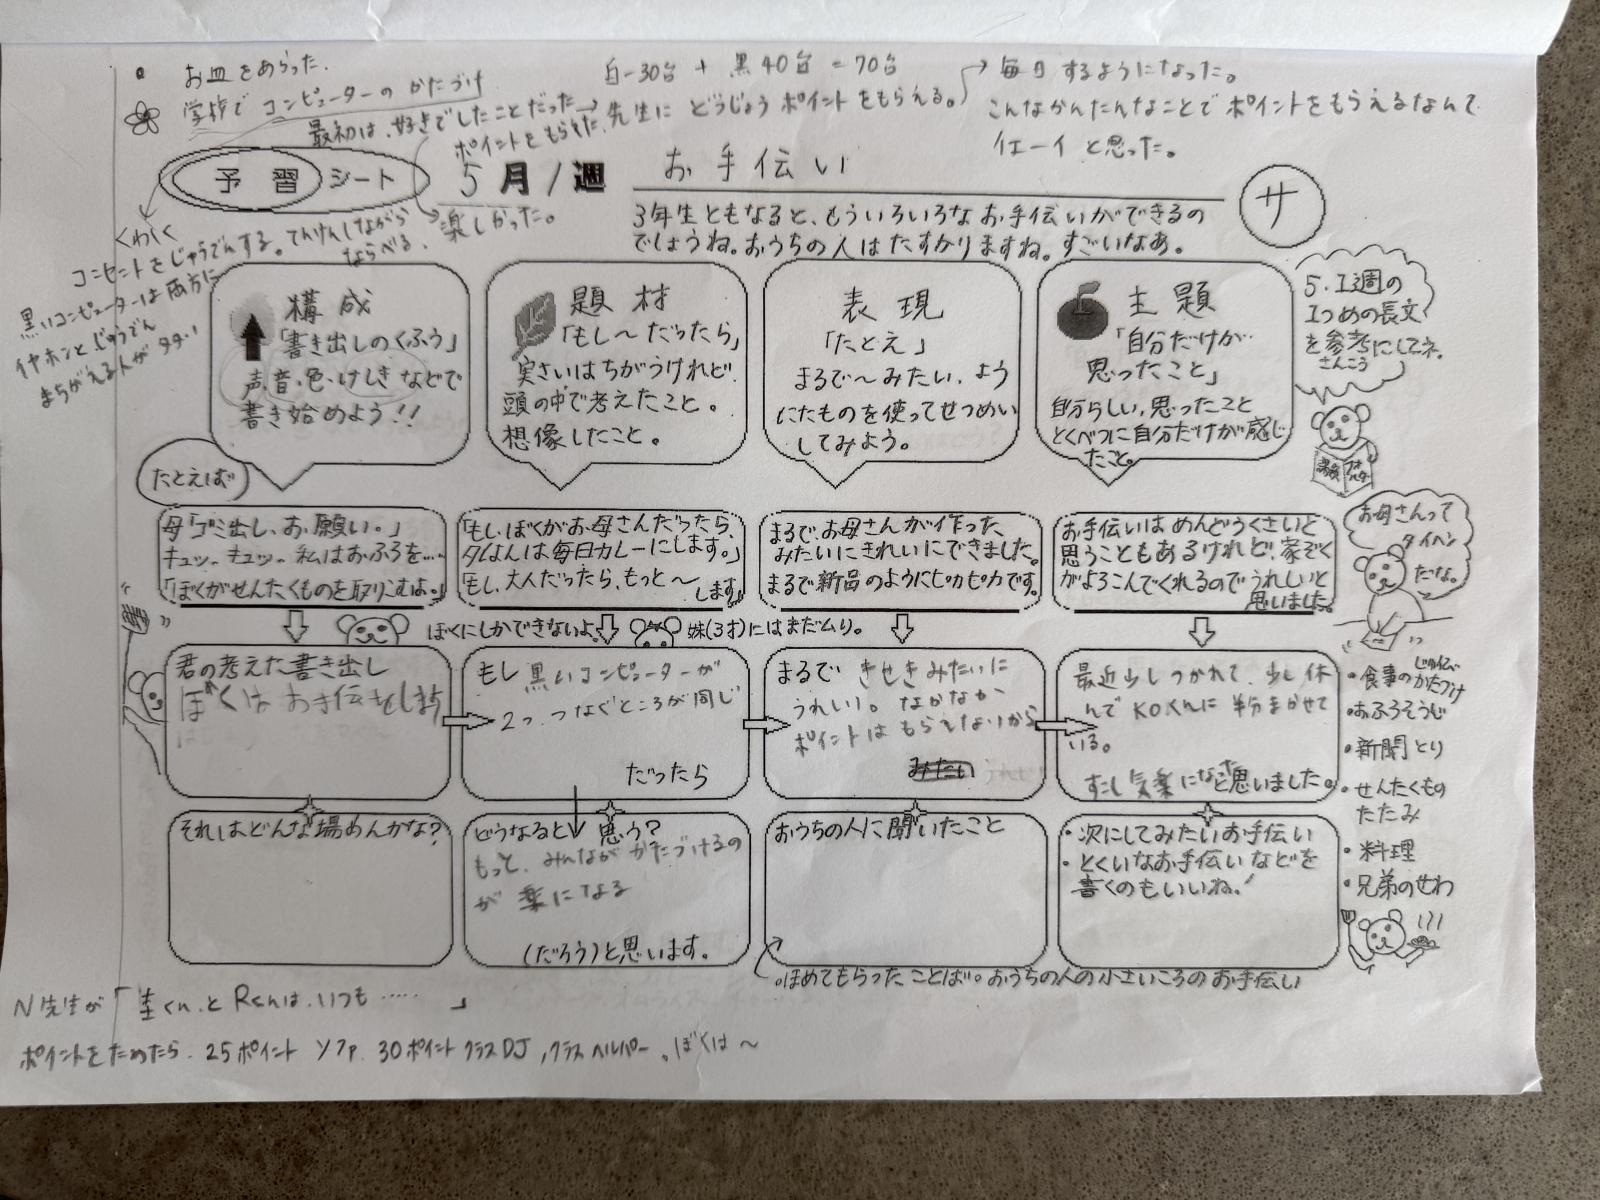 お皿をあらった.
学校でコンピューターのかたづけ
白-30台 + 黒40台 = 70台
最初は、好きでしたことだった→先生に どうじょうポイントをもらえる。
ポイントをもらえた.
→毎日するようになった。
こんなかんたんなことでポイントをもらえるなんて
イエーイと思った。
楽しかった。
くわしく
コンセントをじゅうでんする。てんけんしながら
ならべる.
黒いコンピューターは両方に
イヤホンとじゅうでん
まちがえる人が
予習シート
5月1週
お手伝い
サ
3年生ともなると、もういろいろなお手伝いができるの
でしょうね。おうちの人はたすかりますね。すごいなあ。
構成
「書き出しのくふう」
声、音、色、けしきなどで
書き始めよう!!
題材
「もし〜だったら」
実さいはちがうけれど、
頭の中で考えたこと。
想像したこと。
表現
「たとえ」
まるで〜みたい、よう
にたものを使ってせつめい
してみよう。
主題
「自分だけが
思ったこと」
自分らしい、思ったこと
とくべつに自分だけが感じ
たこと。
5.1週の
1つめの長文
を参考にしてネ.
さんこう
たとえば
母「ゴミ出し、お願い。」
キュッ、キュッ、私はおふろを…
「ぼくがせんたくものを取りこむよ。」
「もし、ぼくがお母さんだったら、
夕ごはんは毎日カレーにします。」
「もし、大人だったら、もっと〜
します」
まるで、お母さんが作った
みたいにきれいにできました。
まるで新品のようにピカピカです。
お手伝いはめんどうくさいと
思うこともあるけれど、家ぞく
がよろこんでくれるのでうれしいと
思いました。
お母さんって
タイヘン
だな。
ぼくにしかできないよ。
妹(3才)にはまだムリ。
君の考えた書き出し
ぼくは お手伝をしま
もし 黒いコンピューターが
2つ、つなぐところが同じ
だったら
まるで きせきみたいに
うれしい。なかなか
ポイントは もらえないから
最近少しつかれて、少し休
んで KOくんに 半分まかせて
いる。
すこし気楽になったと思いました。
それはどんな場めんかな?
どうなると思う?
もっと、みんながかたづけるの
が 楽になる
(だろう)と思います。
おうちの人に聞いたこと
・次にしてみたいお手伝い
・とくいなお手伝いなどを
書くのもいいね!
・食事のかたづけ
・おふろそうじ
・新聞とり
・せんたくもの
たたみ
・料理
・兄弟のせわ
。ほめてもらったことば。おうちの人の小さいころのお手伝い
N先生が「圭くん、とRくんは、いつも……」
ポイントをためたら、25ポイント ソファ、30ポイント クラスDJ、クラスヘルパー。ぼくは〜